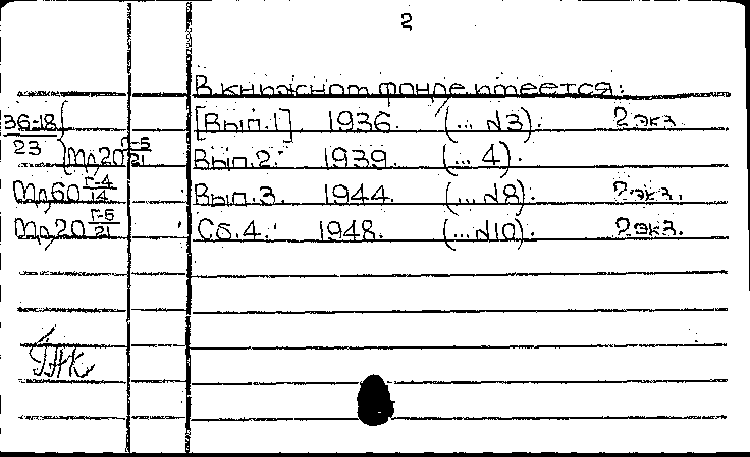 2
В книжном фонде имеется:
36-18/23 [Вып. 1]. 1936. (... №3). 2 экз.
Мд20 Г-5/21 Вып. 2. 1939. (... 4).
Мд60 Г-4/14 Вып. 3. 1944. (... №8). 2 экз.
Мд20 Г-5/21 Сб. 4. 1948. (... №10). 2 экз.